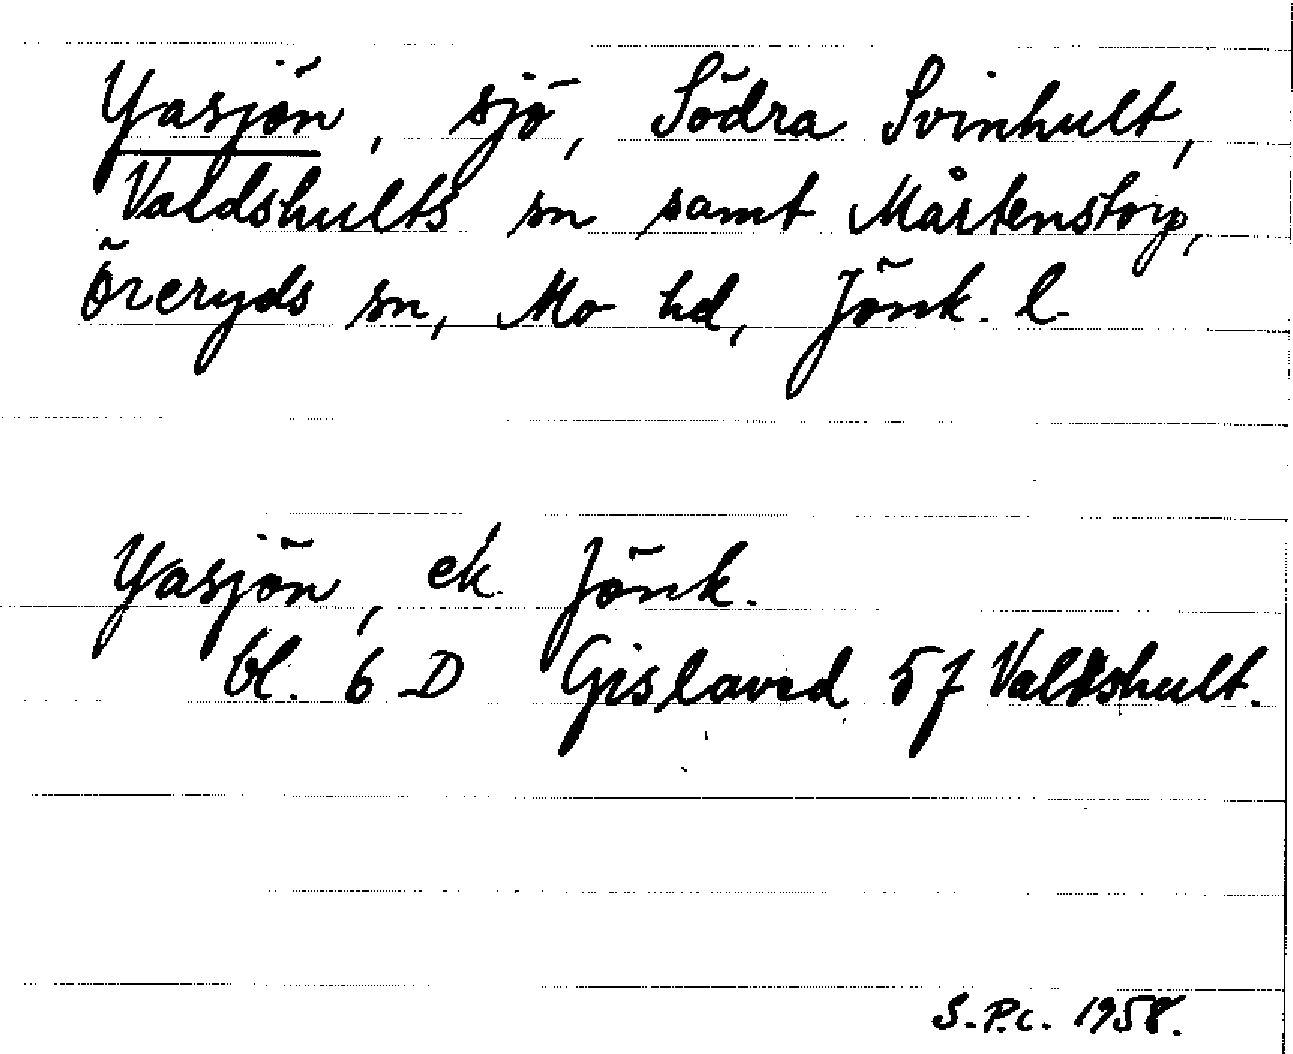 Yasjön, sjö, Södra Svinhult,
Valdshults sn samt Mårtenstorp,
Öreryds sn, Mo hd, Jönk. l.
Yasjön, ek. Jönk.
bl. 6 D Gislaved 5f Valdshult.
S.P.c. 1958.